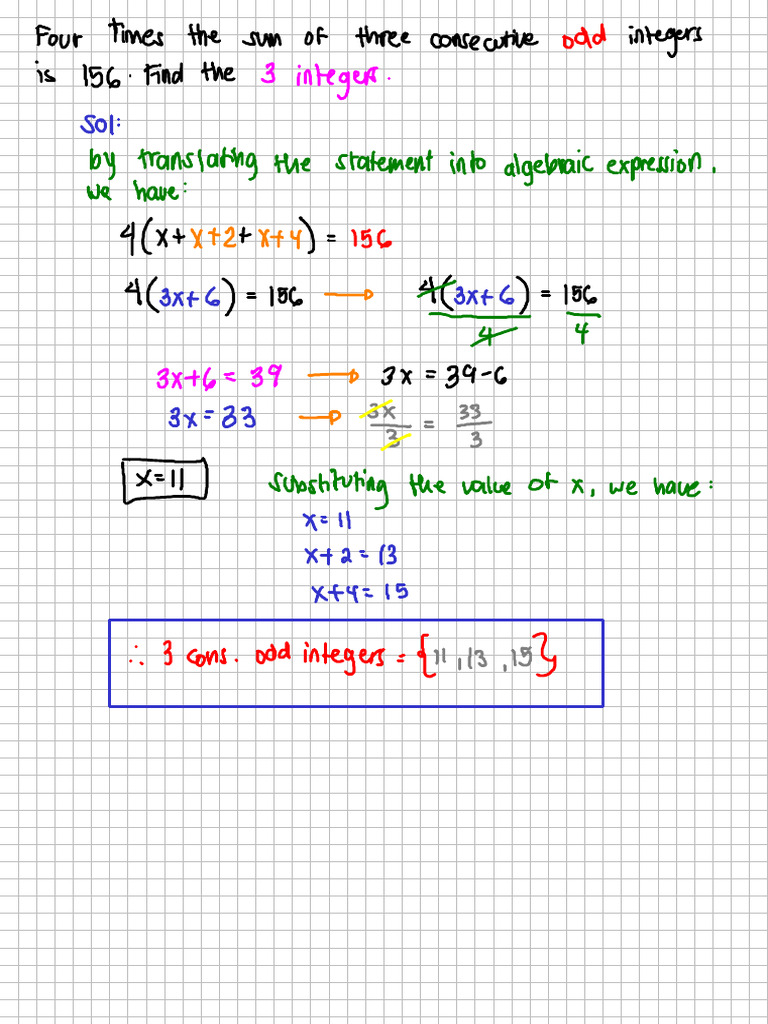 Four times the sum of three consecutive odd integers
is 156. Find the 3 integers.
Sol:
by translating the statement into algebraic expression,
we have:
4(x+x+2+x+4) = 156
4(3x+6) = 156 → 4(3x+6)/4 = 156/4
3x+6 = 39 → 3x = 39-6
3x = 33 → 3x/3 = 33/3
x=11 Substituting the value of x, we have:
x=11
x+2=13
x+4=15
∴ 3 cons. odd integers = {11, 13, 15}